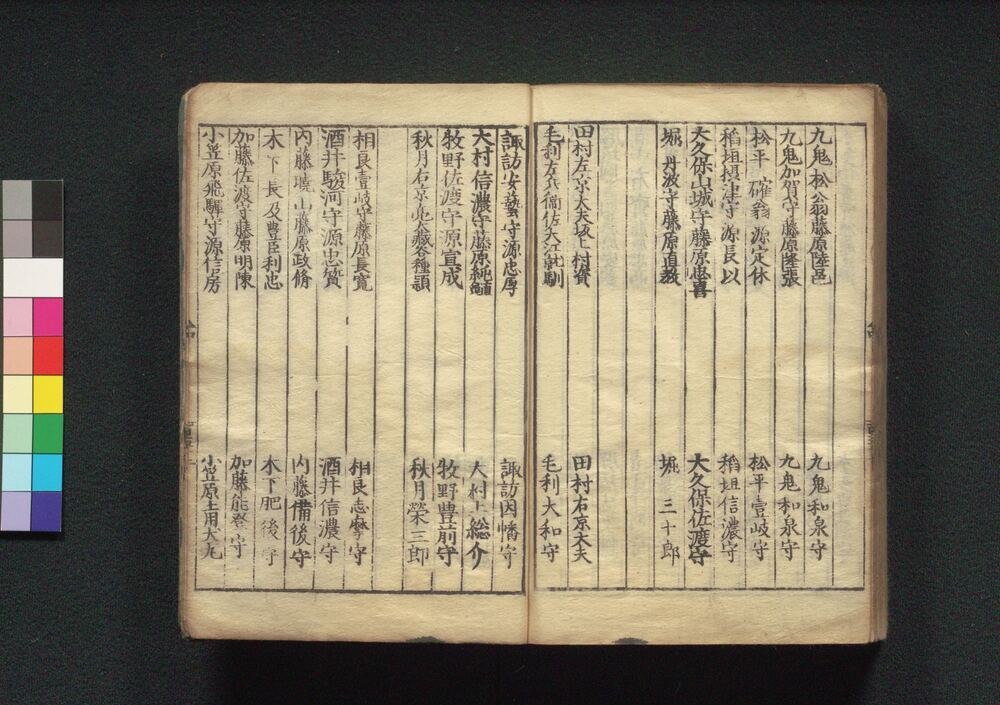 九鬼松翁藤原隆邑 九鬼和泉守
九鬼加賀守藤原隆張 九鬼和泉守
松平確翁源定休 松平壹岐守
稲垣摂津守源長以 稲垣信濃守
大久保山城守藤原忠喜 大久保佐渡守
堀丹波守藤原直教 堀三十郎
田村左京大夫坂上村資 田村右京大夫
毛利左兵衛佐大江就馴 毛利大和守
諏訪安藝守源忠厚 諏訪因幡守
大村信濃守藤原純 大村上総介
牧野佐渡守源宣成 牧野豊前守
秋月右京亮大蔵種頴 秋月榮三郎
相良壹岐守藤原長寛 相良志摩守
酒井駿河守源忠質 酒井信濃守
内藤曉山藤原政脩 内藤備後守
木下長及豊臣利忠 木下肥後守
加藤佐渡守藤原明陳 加藤能登守
小笠原飛騨守源信房 小笠原土用犬丸